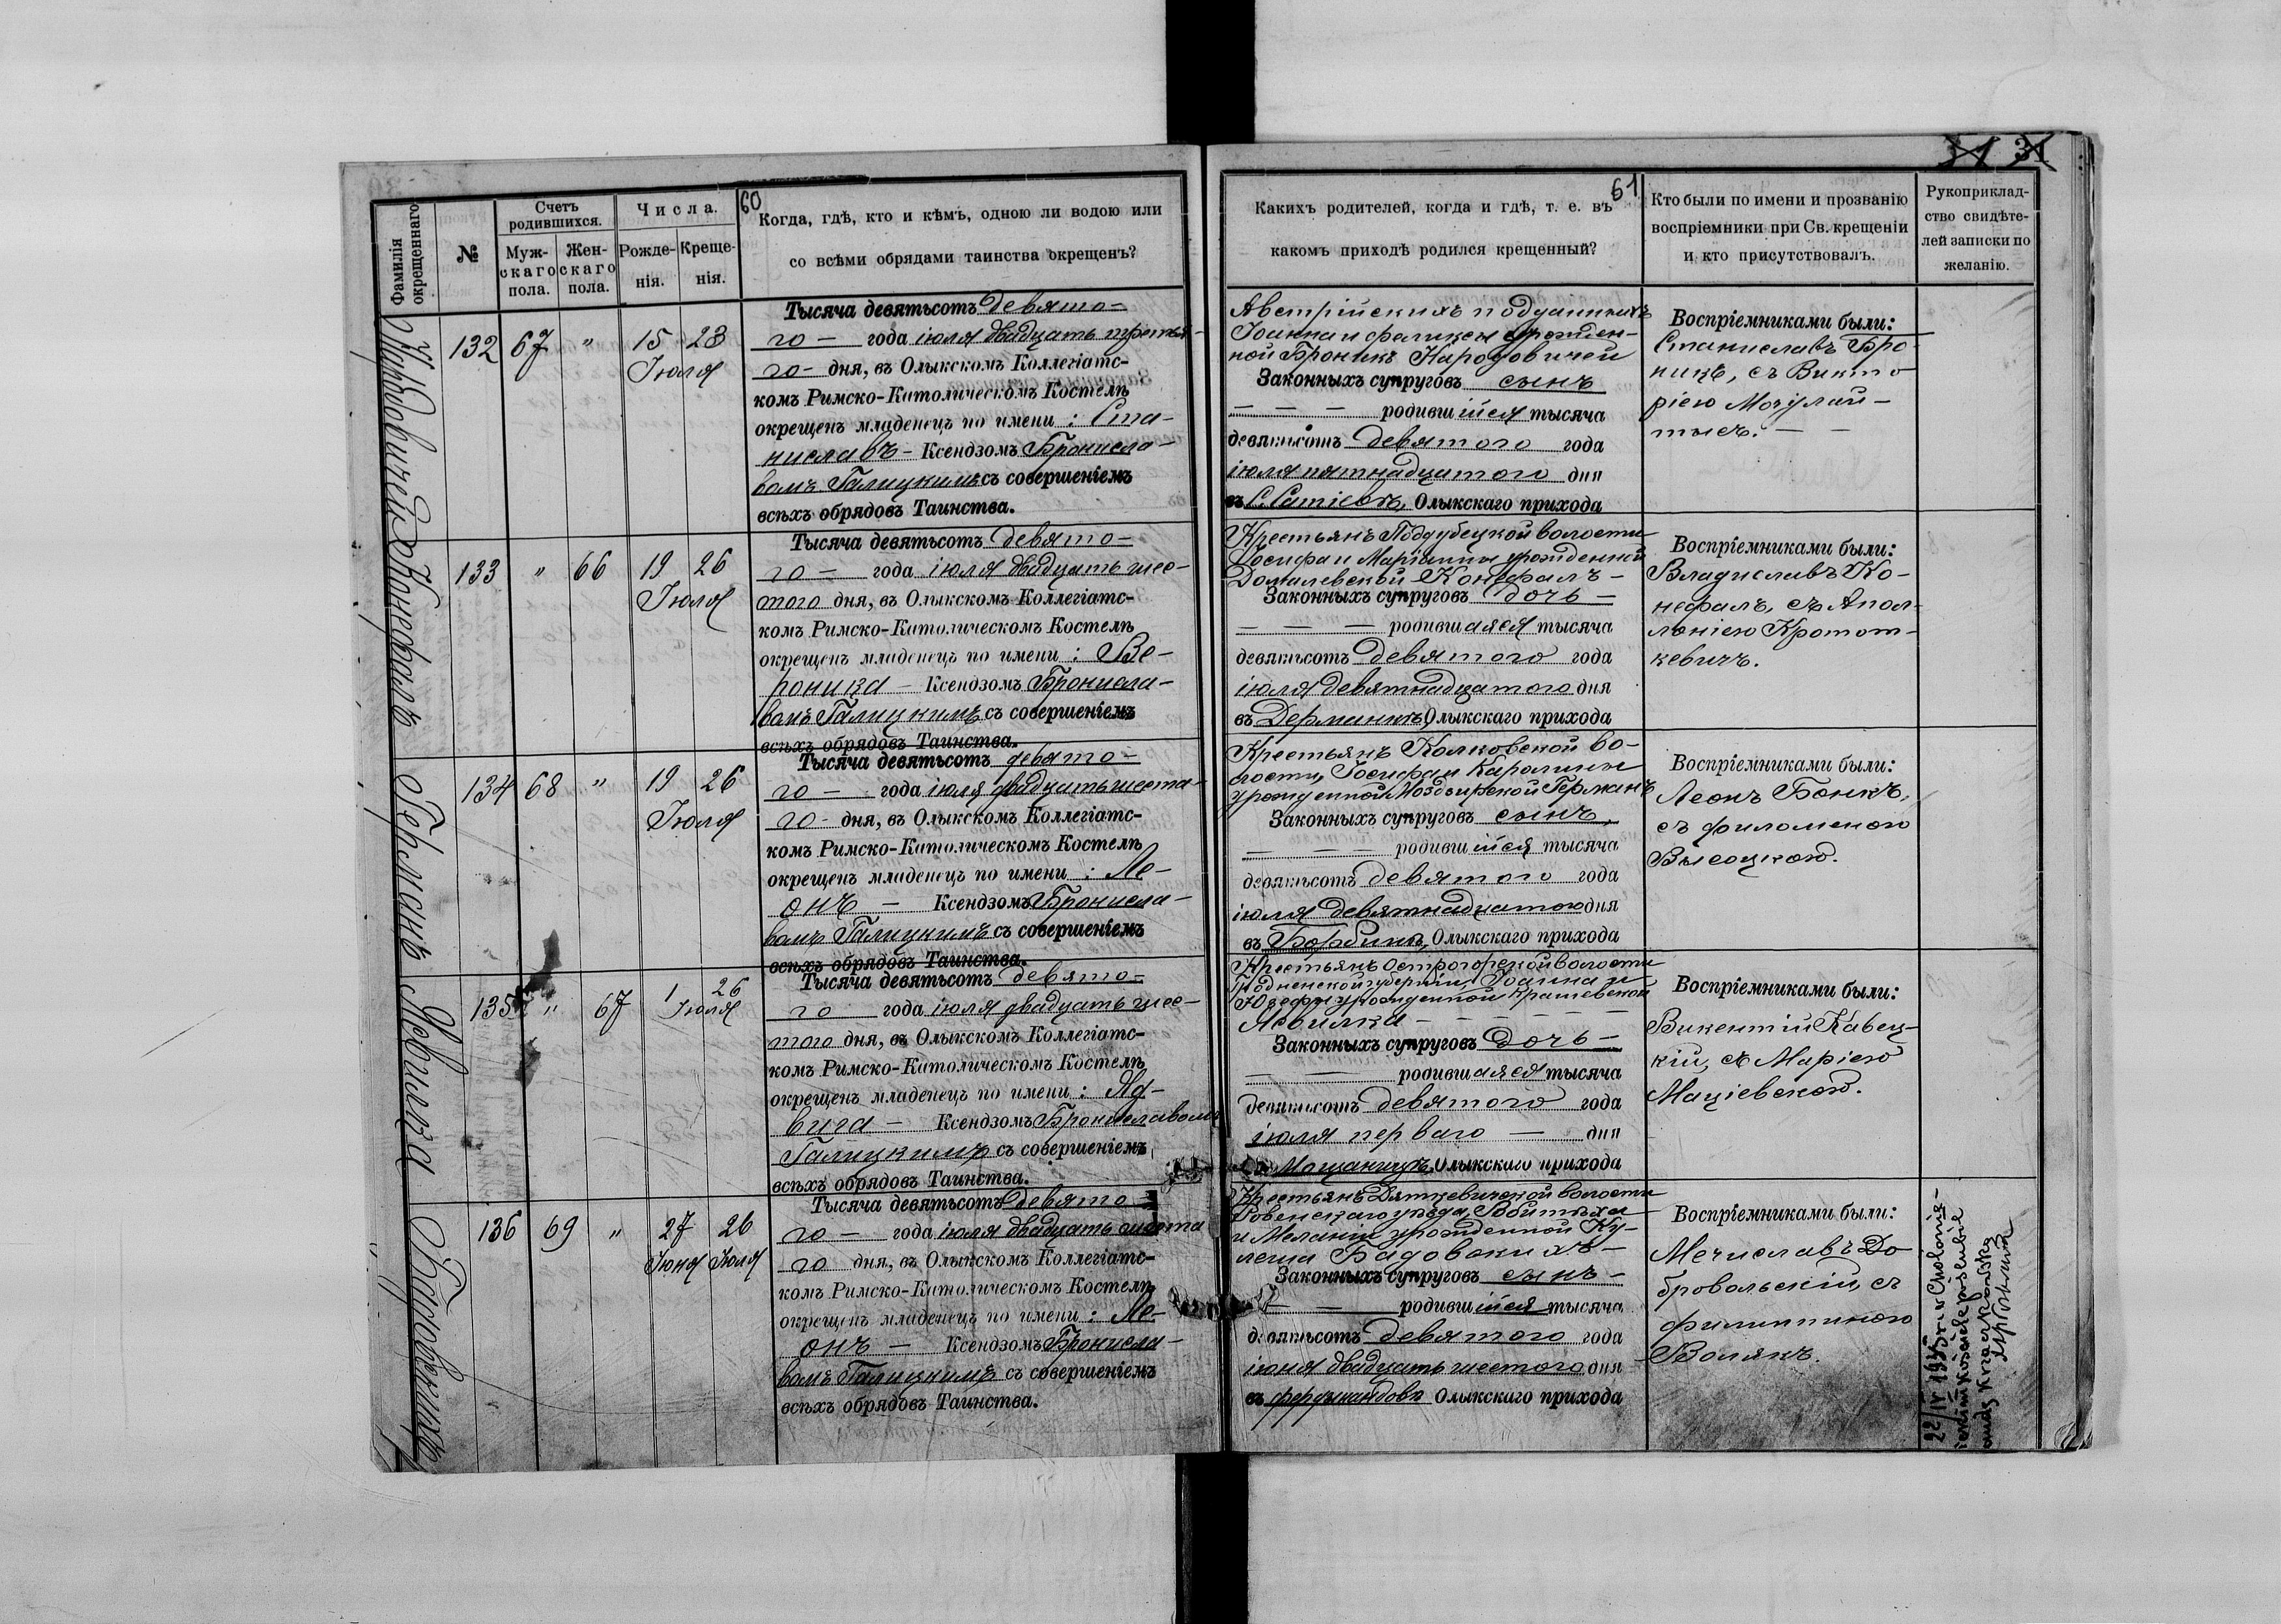 31 31
60
Фамилія окрещеннаго
№
Счетъ родившихся.
Муж-скаго пола.
Жен-скаго пола.
Числа.
Рожде-нія.
Креще-нія.
Когда, гдѣ, кто и кѣмъ, одною ли водою или
со всѣми обрядами таинства окрещенъ?
132 67 " 15 23
Іюля
Тысяча девятьсотъ девято-
го — года іюля двадцать третья-
го - дня, въ Олыкскомъ Коллегіатс-
комъ Римско-Католическомъ Костелѣ
окрещенъ младенецъ по имени : Ста-
ниславъ - Ксендзомъ Брониcла-
вомъ Галицкимъ съ совершеніемъ
всѣхъ обрядовъ Таинства.
Конефалъ
133 " 66 19 26
Іюля
Тысяча девятьсотъ девято-
го — года іюля двадцать шес-
того дня, въ Олыкскомъ Коллегіатс-
комъ Римско-Католическомъ Костелѣ
окрещенъ младенецъ по имени : Ве-
роника - Ксендзомъ Брониcла-
вомъ Галицкимъ съ совершеніемъ
всѣхъ обрядовъ Таинства.
Германъ
134 68 " 19 26
Іюля
Тысяча девятьсотъ девято-
го — года іюля двадцать шеста-
го - дня, въ Олыкскомъ Коллегіатс-
комъ Римско-Католическомъ Костелѣ
окрещенъ младенецъ по имени : Ле-
онъ — Ксендзомъ Брониcла-
вомъ Галицкимъ съ совершеніемъ
всѣхъ обрядовъ Таинства.
135 " 67 1 26
Іюля
Тысяча девятьсотъ девято-
го — года іюля двадцать шес-
того дня, въ Олыкскомъ Коллегіатс-
комъ Римско-Католическомъ Костелѣ
окрещенъ младенецъ по имени : Яд-
вига — Ксендзомъ Брониславомъ
Галицкимъ съ совершеніемъ
всѣхъ обрядовъ Таинства.
136 69 " 27 26
Іюня Іюля
Тысяча девятьсотъ девято-
го — года іюля двадцать шеста
го дня, въ Олыкскомъ Коллегіатс-
комъ Римско-Католическомъ Костелѣ
окрещенъ младенецъ по имени : Ле-
онъ — Ксендзомъ Брониcла-
вомъ Галицкимъ съ совершеніемъ
всѣхъ обрядовъ Таинства.
61
Какихъ родителей, когда и гдѣ, т. е. въ
какомъ приходѣ родился крещенный?
Кто были по имени и прозванію
воспріемники при Св. крещеніи
и кто присутствовалъ.
Рукоприклад-
ство свидѣте-
лей записки по
желанію.
Австрійскихъ подданныхъ
Іоанна и Феликсы урожден-
ной Броникъ
Законныхъ супруговъ сынъ
— — — родившійся тысяча
девятьсотъ девятого года
іюля пятнадцатого дня
въ С. Сатіевѣ, Олыкскаго прихода
Воспріемниками были:
Станиславъ Бро-
ницъ, съ Викто-
ріею
Крестьянъ Поддубецкой волости
Іосифа и Маріанны урожденной
Домалевской Конефалъ -
Законныхъ супруговъ дочь —
— — — родившаяся тысяча
девятьсотъ девятого года
іюля девятнадцатого дня
въ Дерманкѣ, Олыкскаго прихода
Воспріемниками были:
Владиславъ Ко-
нефалъ, съ Апол-
лоніею
Крестьянъ Колковской во-
лости, Іосифа и Каролины
урожденной Германъ
Законныхъ супруговъ сынъ,
— — — родившійся тысяча
девятьсотъ девятого года
іюля девятнадцатого дня
въ Олыкскаго прихода
Воспріемниками были:
Леонъ Бонкъ,
съ Филоменою
Высоцкою.
Крестьянъ Острогорской волости
губерніи, Іоанна и
Юзефы урожденной Крашевской
Левилка — — —
Законныхъ супруговъ дочь —
— — родившаяся тысяча
девятьсотъ девятого года
іюля перваго — дня
въ Мощаницѣ, Олыкскаго прихода
Воспріемниками были:
Викентій Кавец-
кій, съ Маріею
Маціевскою.
Крестьянъ Дятковичской волости
Ровенскаго уѣзда, Войтѣха
и Меланіи урожденной Ку-
леша Бадовскихъ —
Законныхъ супруговъ сынъ —
— — родившійся тысяча
девятьсотъ девятого года
іюня двадцать шестого дня
въ Фердынандовѣ Олыкскаго прихода
Воспріемниками были:
Мечиславъ До-
бровольскій, съ
Филиппиною
Волякъ.
22/IV 1935 r w